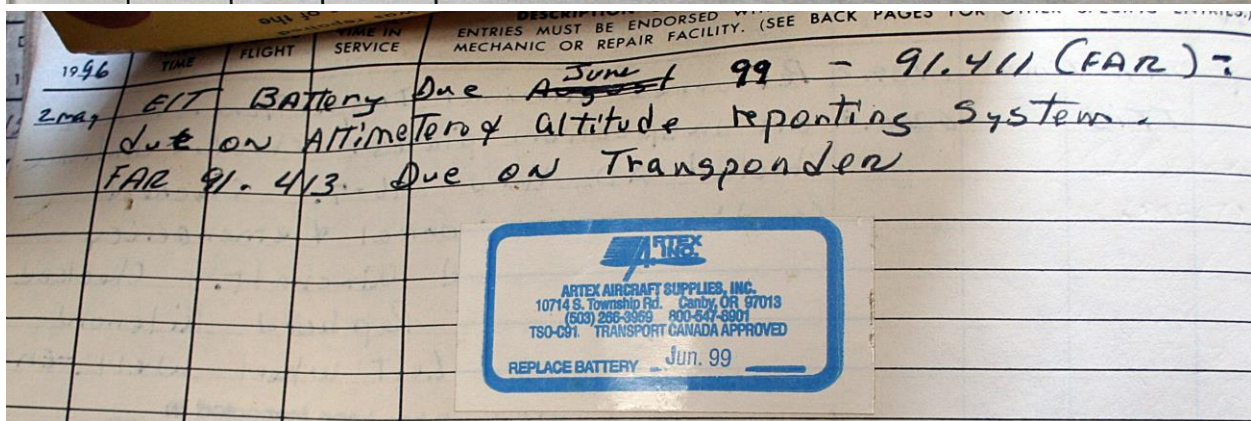 DESCRIPTION
TIME IN ENTRIES MUST BE ENDORSED
FLIGHT SERVICE MECHANIC OR REPAIR FACILITY. (SEE BACK PAGES FOR OTHER SPECIFIC ENTRIES.)
1996 TIME
2 May ElT BATTery Due August June 99 - 91.411 (FAR) -
due on AlTimeTer & altitude reporting System.
FAR 91.413. Due on Transponder
ARTEX
INC.
ARTEX AIRCRAFT SUPPLIES, INC.
10714 S. Township Rd. Canby, OR 97013
(503) 266-3959 800-547-8901
TSO-C91 TRANSPORT CANADA APPROVED
REPLACE BATTERY Jun. 99